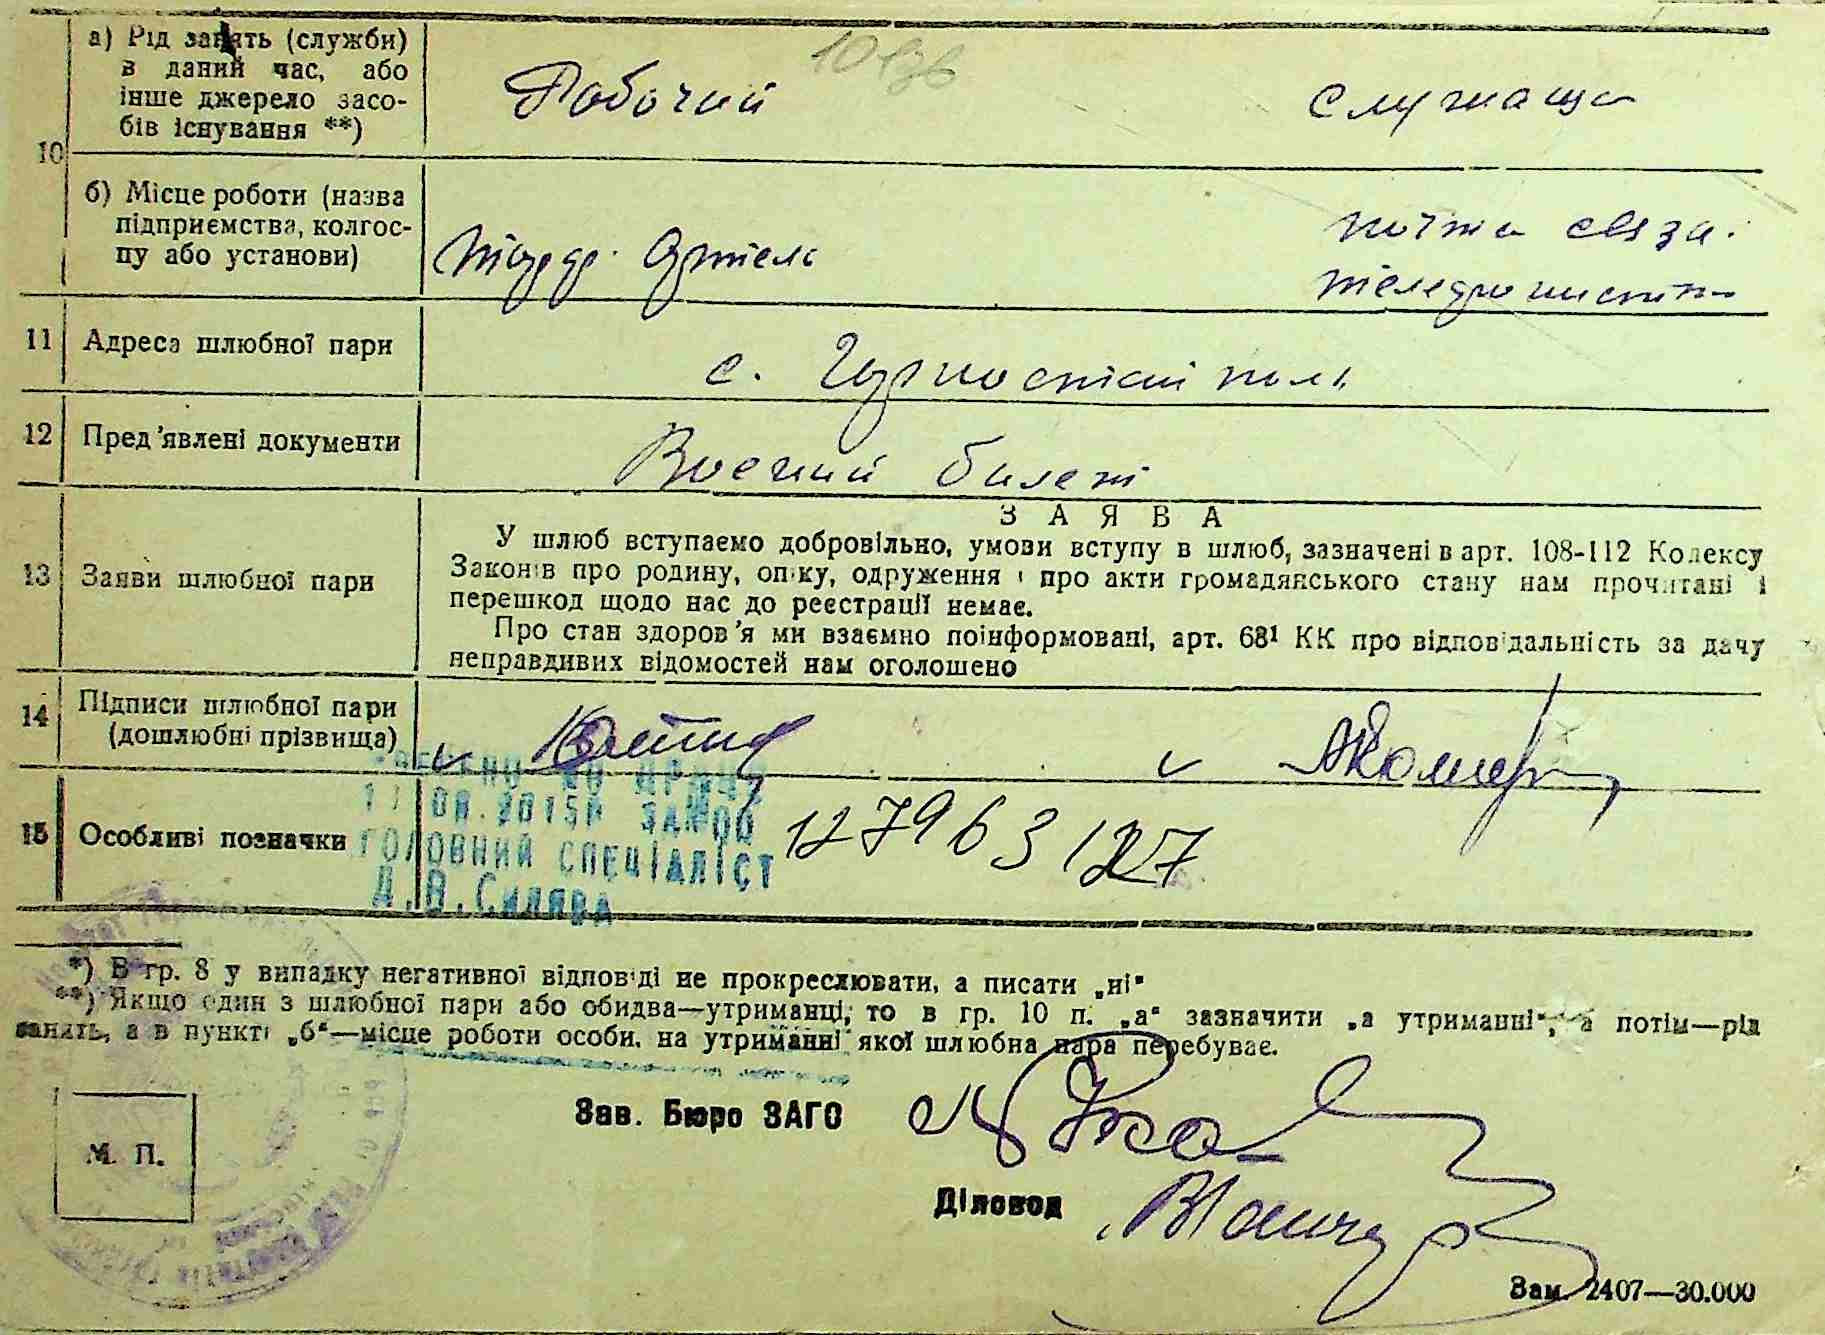 10
а) Рід занять (служби)
в даний час, або
інше джерело засо-
бів існування **)
Робочий
служащи
б) Місце роботи (назва
підприємства, колгос-
пу або установи)
Артель
почта связи
телефонистка
11 Адреса шлюбної пари
с. Горностайполь
12 Пред'явлені документи
Воений билет
13 Заяви шлюбної пари
ЗАЯВА
У шлюб вступаємо добровільно, умови вступу в шлюб, зазначені в арт. 108-112 Кодексу
Законів про родину, опіку, одруження і про акти громадянського стану нам прочитані і
перешкод щодо нас до реєстрації немає.
Про стан здоров'я ми взаємно поінформовані, арт. 68¹ КК про відповідальність за дачу
неправдивих відомостей нам оголошено
14 Підписи шлюбної пари
(дошлюбні прізвища)
15 Особливі позначки
ЗВЕРЕНО ДО ДРАЦС
08.2015Р
ГОЛОВНИЙ СПЕЦІАЛІСТ
Д.В.Силява
*) В гр. 8 у випадку негативної відповіді не прокреслювати, а писати „ні"
**) Якщо один з шлюбної пари або обидва—утриманці, то в гр. 10 п. „а" зазначити „а утриманні", а потім—рід
занять, а в пункті „б"—місце роботи особи, на утриманні якої шлюбна пара перебуває.
М. П.
Зав. Бюро ЗАГС
Діловод
Зам. 2407—30.000